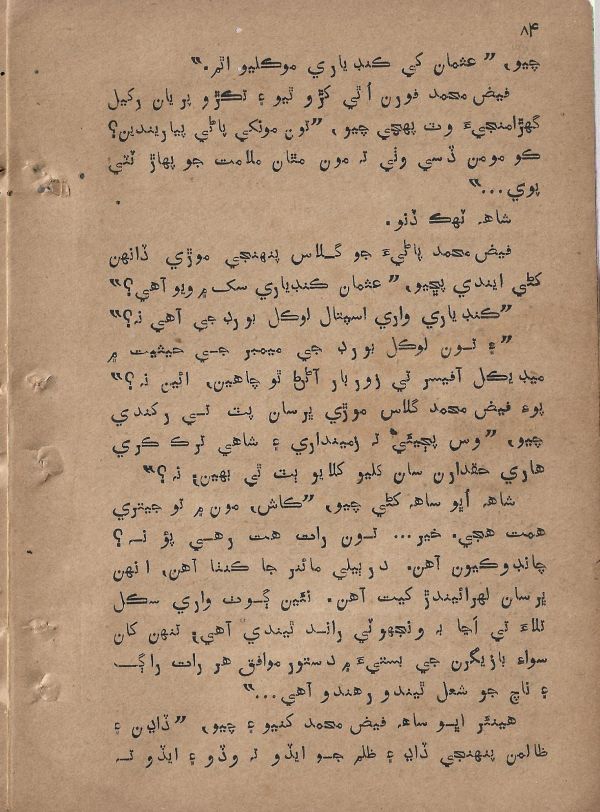 ۸۴
چيو، ”عثمان کي ڪنڊياري موڪليو اٿم.“
فيض محمد فورن اُٿي کڙو ٿيو ۽ تڪڙو پريان رکيل
گهڙامنجيءَ وٽ پهچي چيو، ”تون مونکي پاڻي پياريندين؟
ڪو مومن ڏسي وٺي ته مون مٿان ملامت جو پهاڙ ٽٽي
پوي...“
شاهه ٽهڪ ڏنو.
فيض محمد پاڻيءَ جو گلاس پنهنجي موڙي ڏانهن
کڻي ايندي پڇيو، ”عثمان ڪنڊياري سک ۾ ويو آهي؟“
”ڪنڊياري واري اسپتال لوڪل بورڊ جي آهي نه؟“
”۽ تون لوڪل بورڊ جي ميمبر جي حيثيت ۾
ميڊيڪل آفيسر تي زور بار آڻڻ ٿو چاهين، ائين نه؟“
پوءِ فيض محمد گلاس موڙي ڀرسان پٽ تي رکندي
چيو، ”وس پڄيئي ته زمينداري ۽ شاهي ترڪ ڪري
هاري حقدارن سان کليو کلايو پٽ تي بهين؛ نه؟“
شاهه اُڀو ساهه کڻي چيو، ”ڪاش، مون ۾ تو جيتري
همت هجي. خير... تون رات هت رهي پؤ نه؟
چانڊوڪيون آهن. درٻيلي مائنر جا ڪنڌا آهن، انهن
ڀرسان لهرائيندڙ کيت آهن. نئين ڳوٺ واري سڪل
تلاءَ تي اڄا به ونجهوٽي راند ٿيندي آهي؛ تنهن کان
سواءِ بازيگرن جي بستيءَ ۾ دستور موافق هر رات راڳ
۽ ناچ جو شغل ٿيندو رهندو آهي...“
هينئر اڀو ساهه فيض محمد کنيو ۽ چيو، ”ڏاڍن ۽
ظالمن پنهنجي ڏاڍ ۽ ظلم جو ايڏو نه وڏو ۽ ايڏو نه